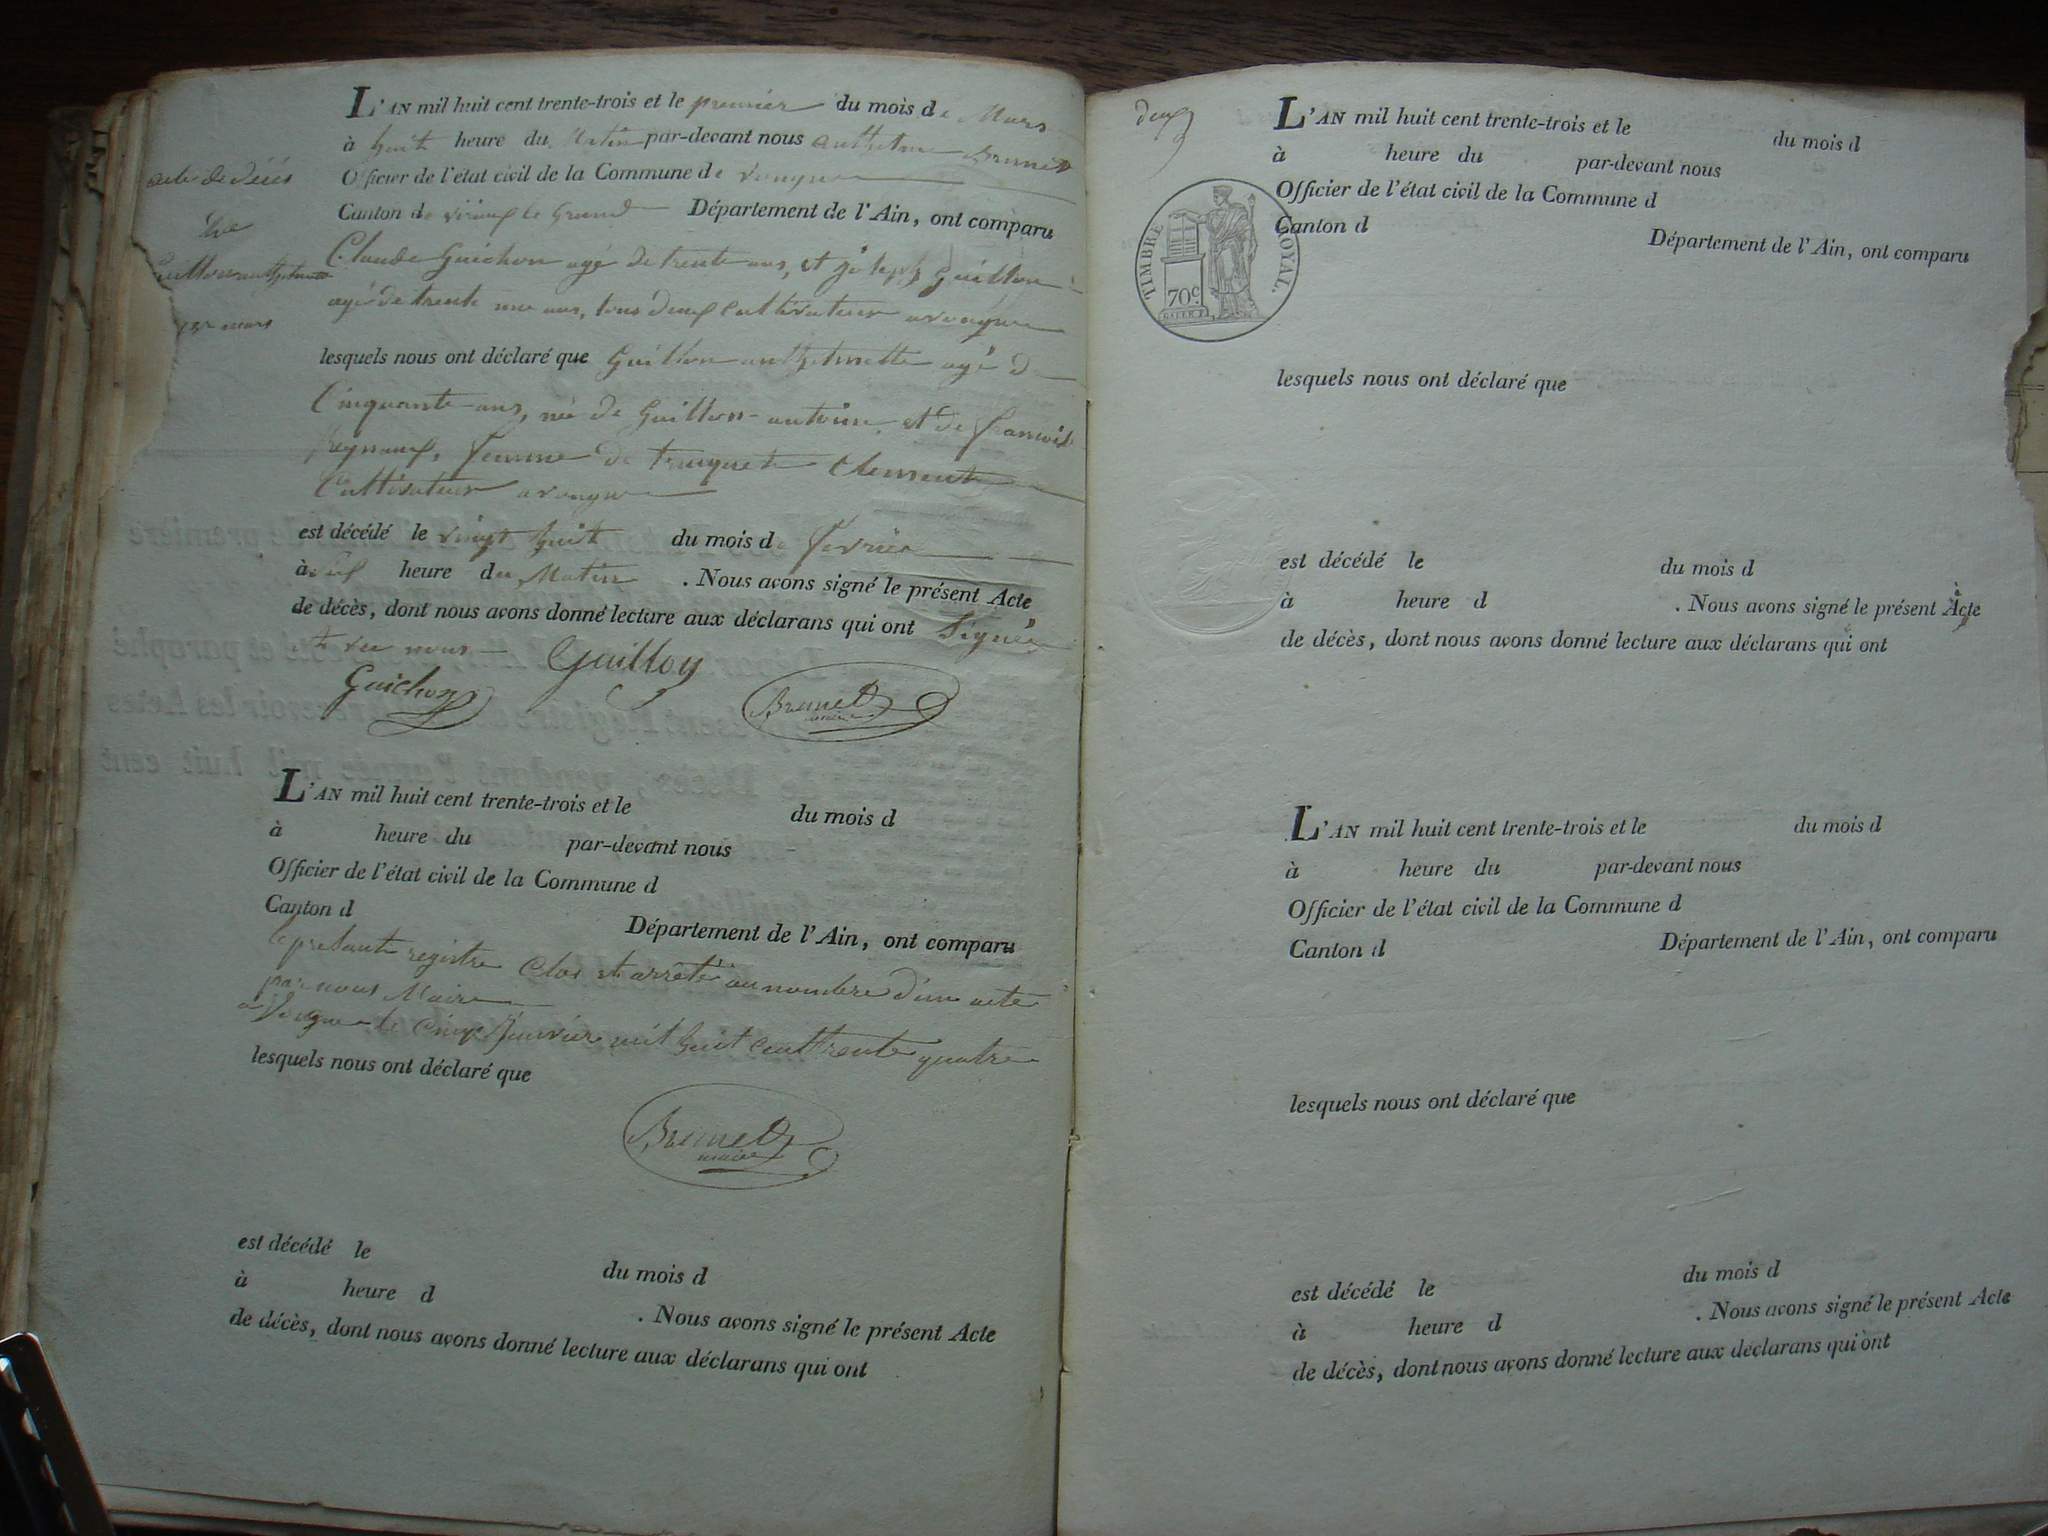 acte de décès
de
Guillon anthelmette
1er mars
L'AN mil huit cent trente-trois et le premier du mois de Mars
à huit heure du Matin par-devant nous anthelme Brunet
Officier de l'état civil de la Commune de vongne
Canton de virieux le Grand Département de l'Ain, ont comparu
Claude Guichon agé de trente ans, et joseph Guillon
agé de trente une ans, tous deux cultivateur a vongne
lesquels nous ont déclaré que Guillon anthelmette agé de
Cinquante ans, née de Guillon antoine et de francoise
Reynaux, femme de truquet Clement
Cultivateur a vongne
est décédé le vingt huit du mois de fevrier
à neuf heure du Matin . Nous avons signé le présent Acte
de décès, dont nous avons donné lecture aux déclarans qui ont signés
et vec nous
Guichon Guillon Brunet
maire
L'AN mil huit cent trente-trois et le du mois d
à heure du par-devant nous
Officier de l'état civil de la Commune d
Canton d Département de l'Ain, ont comparu
le présante registre Clos et arrêté au nombre d'un acte
par nous Maire
a Vongne le cinq Janvier mil huit cent trente quatre
lesquels nous ont déclaré que
Brunet
maire
est décédé le du mois d
à heure d . Nous avons signé le présent Acte
de décès, dont nous avons donné lecture aux déclarans qui ont
deux
TIMBRE ROYAL.
70c
L'AN mil huit cent trente-trois et le du mois d
à heure du par-devant nous
Officier de l'état civil de la Commune d
Canton d Département de l'Ain, ont comparu
lesquels nous ont déclaré que
est décédé le du mois d
à heure d . Nous avons signé le présent Acte
de décès, dont nous avons donné lecture aux déclarans qui ont
L'AN mil huit cent trente-trois et le du mois d
à heure du par-devant nous
Officier de l'état civil de la Commune d
Canton d Département de l'Ain, ont comparu
lesquels nous ont déclaré que
est décédé le du mois d
à heure d . Nous avons signé le présent Acte
de décès, dont nous avons donné lecture aux déclarans qui ont